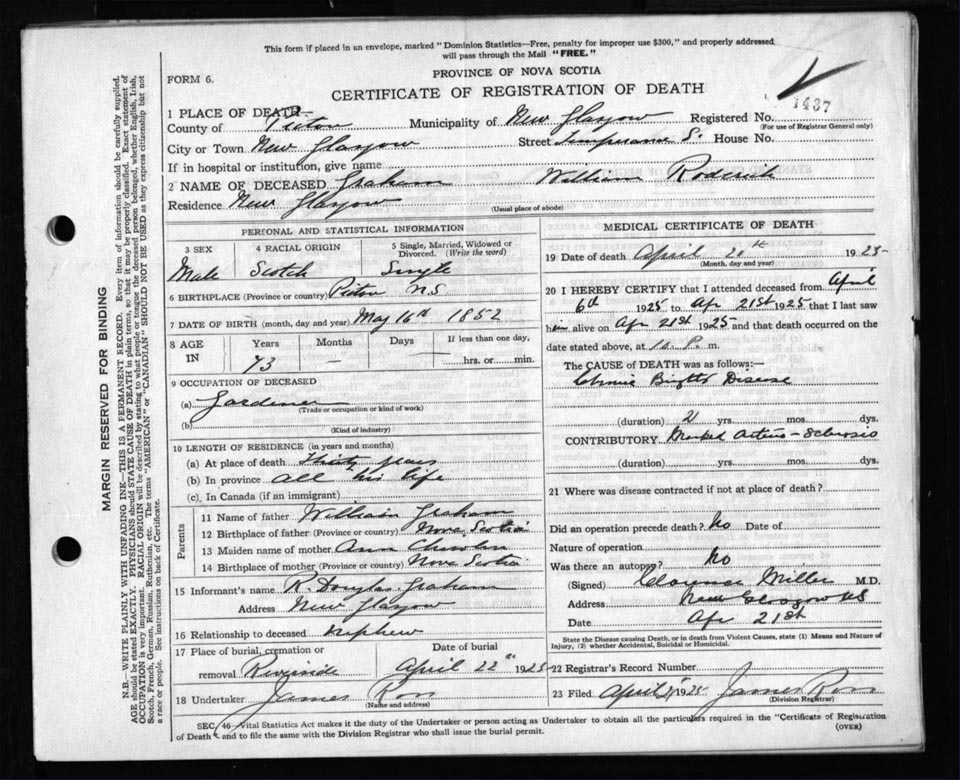 This form if placed in an envelope, marked "Dominion Statistics—Free, penalty for improper use $300," and properly addressed
will pass through the Mail "FREE."
PROVINCE OF NOVA SCOTIA
FORM 6.
CERTIFICATE OF REGISTRATION OF DEATH
1437
1 PLACE OF DEATH—
County of Pictou Municipality of New Glasgow Registered No.
(For use of Registrar General only)
City or Town New Glasgow Street House No.
If in hospital or institution, give name
2 NAME OF DECEASED Graham William Roderick
Residence New Glasgow
(Usual place of abode)
PERSONAL AND STATISTICAL INFORMATION
3 SEX 4 RACIAL ORIGIN 5 Single, Married, Widowed or Divorced. (Write the word)
Male Scotch Single
6 BIRTHPLACE (Province or country) Pictou N.S
7 DATE OF BIRTH (month, day and year) May 16th 1852
8 AGE IN Years Months Days If less than one day,
73 — — hrs. or min.
9 OCCUPATION OF DECEASED
(a) Gardener
(Trade or occupation or kind of work)
(b)
(Kind of industry)
10 LENGTH OF RESIDENCE (in years and months)
(a) At place of death Thirty years
(b) In province all his life
(c) In Canada (if an immigrant)
Parents
11 Name of father William Graham
12 Birthplace of father (Province or country) Nova Scotia
13 Maiden name of mother Ann
14 Birthplace of mother (Province or country) Nova Scotia
15 Informant's name R. Douglas Graham
Address New Glasgow
16 Relationship to deceased nephew
17 Place of burial, cremation or removal Date of burial
Riverside April 22" 1925
18 Undertaker James Ross
(Name and address)
MEDICAL CERTIFICATE OF DEATH
19 Date of death April 21st 1925
(Month, day and year)
20 I HEREBY CERTIFY that I attended deceased from April
6th 1925 to Apr 21st 1925 that I last saw
him alive on Apr 21st 1925 and that death occurred on the
date stated above, at 10 P. m.
The CAUSE OF DEATH was as follows:—
Chronic Brights Disease
(duration) 2 yrs. mos. dys.
CONTRIBUTORY Marked Arterio-Sclerosis
(duration) yrs. mos. dys.
21 Where was disease contracted if not at place of death?
Did an operation precede death? No Date of
Nature of operation
Was there an autopsy? No
(Signed) Clarence Miller M.D.
Address New Glasgow NS
Date Apr 21st
State the Disease causing Death, or in death from Violent Causes, state (1) Means and Nature of
Injury, (2) whether Accidental, Suicidal or Homicidal.
22 Registrar's Record Number
23 Filed April 21 1925 James Ross
(Division Registrar)
SEC. 46 Vital Statistics Act makes it the duty of the Undertaker or person acting as Undertaker to obtain all the particulars required in the "Certificate of Registration
of Death", and to file the same with the Division Registrar who shall issue the burial permit.
(OVER)
MARGIN RESERVED FOR BINDING
N.B.—WRITE PLAINLY WITH UNFADING INK—THIS IS A PERMANENT RECORD. Every item of information should be carefully supplied.
AGE should be stated EXACTLY. PHYSICIANS should STATE CAUSE OF DEATH in plain terms, so that it may be properly classified. Exact statement of
OCCUPATION is very important. RACIAL ORIGIN will be described by stating to what people or tongue the deceased person belonged, whether English, Irish,
Scotch, French, German, Russian, Ruthenian, etc. The terms "AMERICAN" or "CANADIAN" SHOULD NOT BE USED as they express citizenship but not
a race or people. See instructions on back of Certificate.